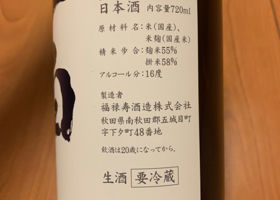 日本酒 内容量720ml
原材料名:米(国産)、
米麹(国産米)
精米歩合:麹米55%
掛米58%
アルコール分:16度
製造者
福禄寿酒造株式会社
秋田県南秋田郡五城目町
字下夕町48番地
飲酒は20歳になってから。
生酒 要冷蔵